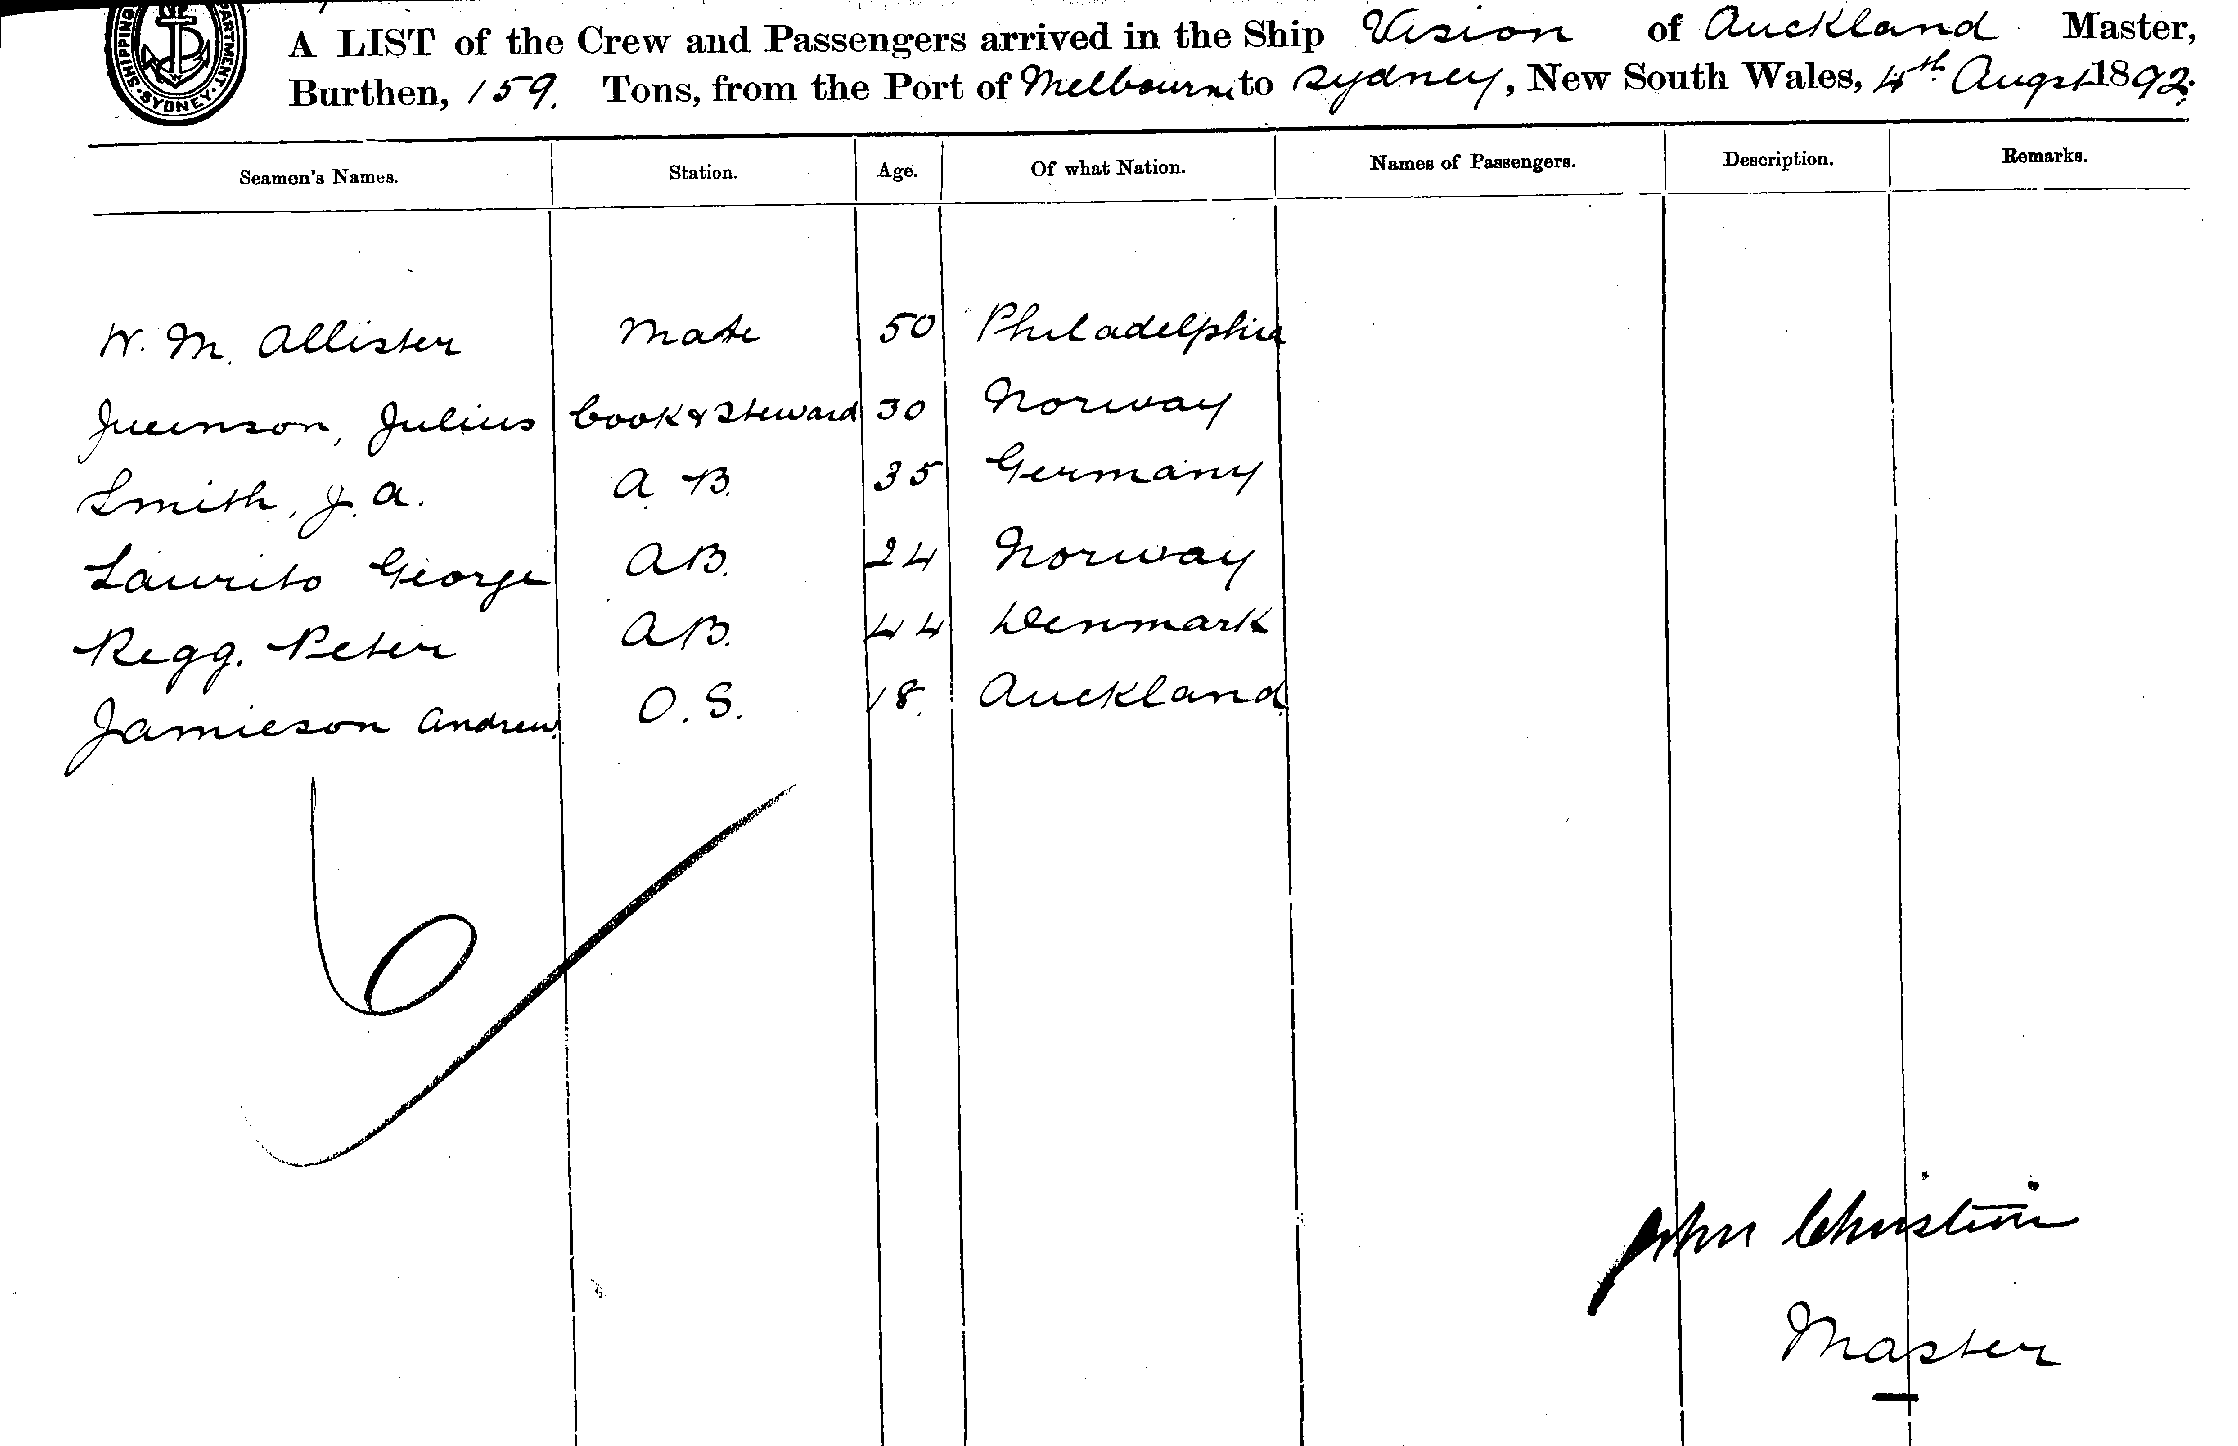 SHIPPING DEPARTMENT · SYDNEY ·
A LIST of the Crew and Passengers arrived in the Ship Vision of Auckland Master,
Burthen, 159. Tons, from the Port of Melbourne to Sydney, New South Wales, 4th Augst 1892.
Seamen's Names. Station. Age. Of what Nation. Names of Passengers. Description. Remarks.
W. M. Allister Mate 50 Philadelphia
Julius Cook & Steward 30 Norway
Smith, J. A. A. B. 35 Germany
Laurito George A.B. 24 Norway
Regg. Peter A.B. 44 Denmark
Jamieson Andrew O. S. 18. Auckland
6
John
Master